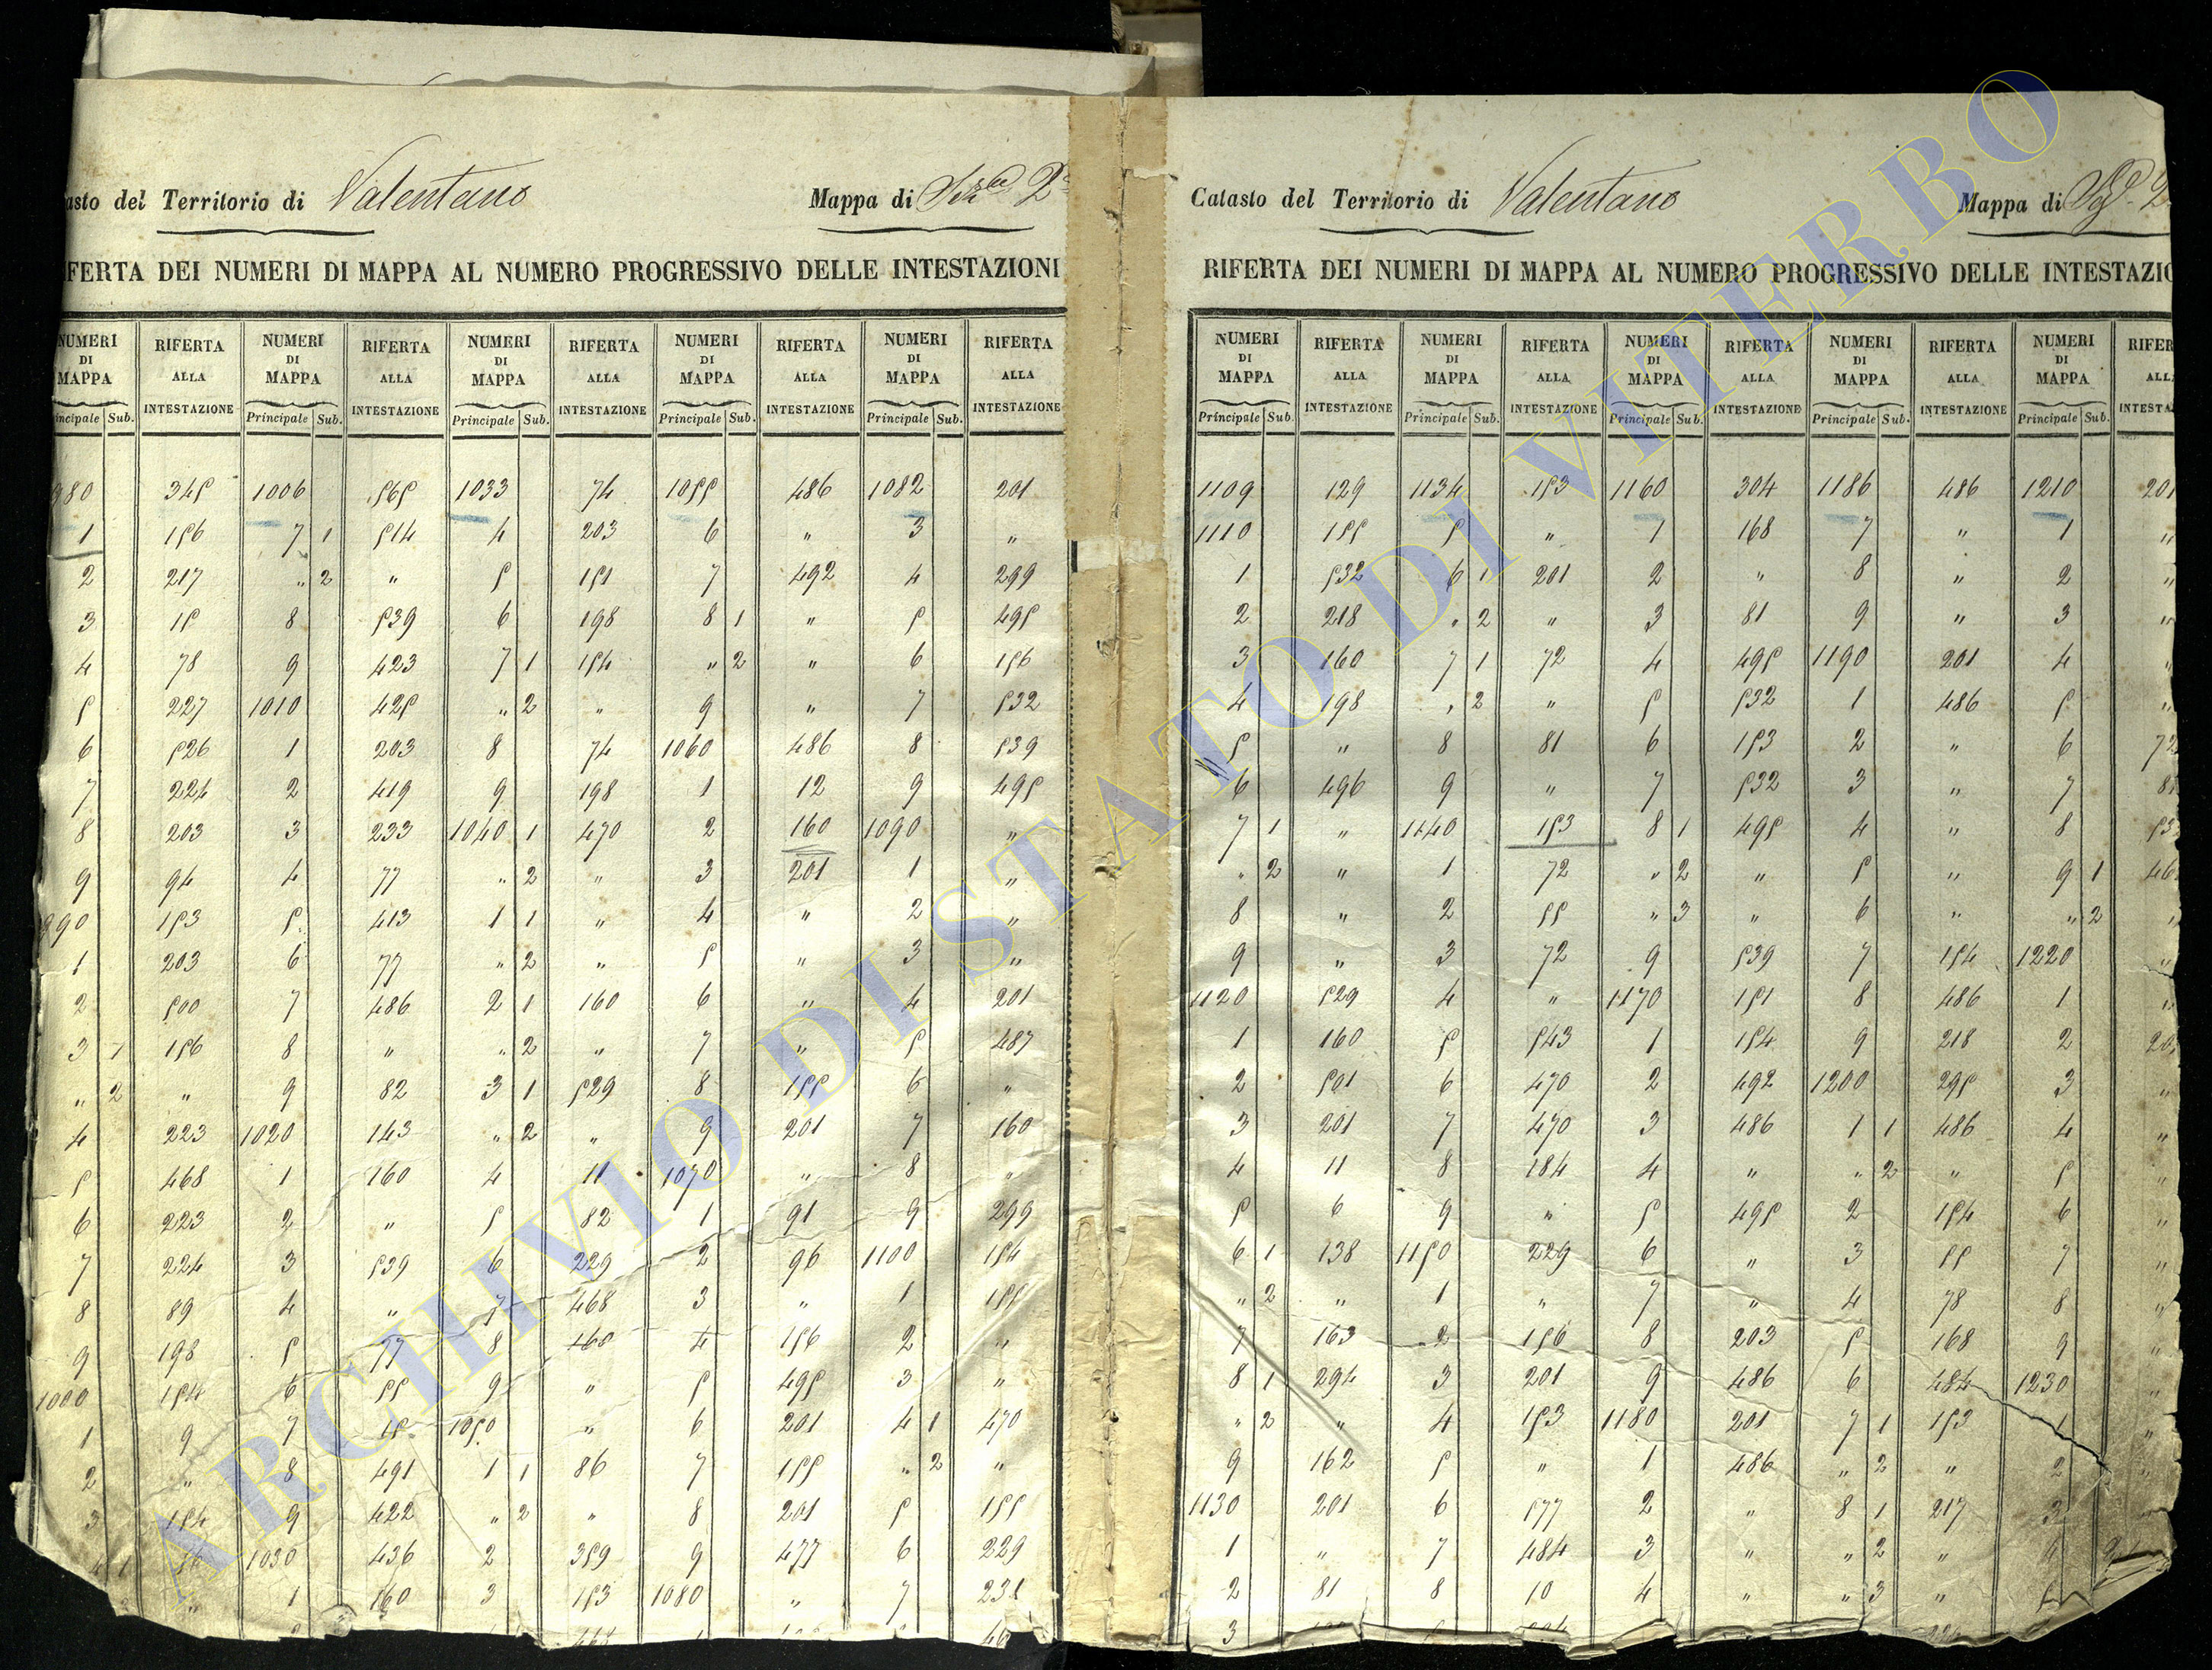 Catasto del Territorio di Valentano Mappa di Sez.e 2a
RIFERTA DEI NUMERI DI MAPPA AL NUMERO PROGRESSIVO DELLE INTESTAZIONI
NUMERI RIFERTA NUMERI RIFERTA NUMERI RIFERTA NUMERI RIFERTA NUMERI RIFERTA
DI ALLA DI ALLA DI ALLA DI ALLA DI ALLA
MAPPA INTESTAZIONE MAPPA INTESTAZIONE MAPPA INTESTAZIONE MAPPA INTESTAZIONE MAPPA INTESTAZIONE
Principale Sub. Principale Sub. Principale Sub. Principale Sub. Principale Sub.
980 345 1006 565 1033 74 1055 486 1082 201
1 156 7 1 514 4 203 6 " 3 "
2 217 " 2 " 5 151 7 492 4 299
3 15 8 539 6 198 8 1 " 5 495
4 78 9 423 7 1 154 " 2 " 6 156
5 227 1010 425 " 2 " 9 " 7 532
6 526 1 203 8 74 1060 486 8 539
7 224 2 419 9 198 1 12 9 495
8 203 3 233 1040 1 470 2 160 1090 "
9 94 4 77 " 2 " 3 201 1 "
990 153 5 413 1 1 " 4 " 2 "
1 203 6 77 " 2 " 5 " 3 "
2 500 7 486 2 1 160 6 " 4 201
3 1 156 8 " " 2 " 7 " 5 487
" 2 " 9 82 3 1 529 8 155 6 "
4 223 1020 143 " 2 " 9 201 7 160
5 468 1 160 4 11 1070 " 8 "
6 223 2 " 5 82 1 91 9 299
7 224 3 539 6 229 2 96 1100 154
8 89 4 " 7 468 3 " 1 155
9 198 5 77 8 160 4 156 2 "
1000 154 6 55 9 " 5 495 3 "
1 9 7 15 1050 " 6 201 4 1 470
2 " 8 491 1 1 86 7 155 " 2 "
3 154 9 422 " 2 " 8 201 5 155
4 1 1030 436 2 359 9 477 6 229
" 1 160 3 153 1080 " 7 231
Catasto del Territorio di Valentano Mappa di Sez. 2
RIFERTA DEI NUMERI DI MAPPA AL NUMERO PROGRESSIVO DELLE INTESTAZIO
NUMERI RIFERTA NUMERI RIFERTA NUMERI RIFERTA NUMERI RIFERTA NUMERI RIFER
DI ALLA DI ALLA DI ALLA DI ALLA DI ALL
MAPPA INTESTAZIONE MAPPA INTESTAZIONE MAPPA INTESTAZIONE MAPPA INTESTAZIONE MAPPA INTESTA
Principale Sub. Principale Sub. Principale Sub. Principale Sub. Principale Sub.
1109 129 1134 153 1160 304 1186 486 1210 201
1110 155 5 " 1 168 7 " 1 "
1 532 6 1 201 2 " 8 " 2 "
2 218 " 2 " 3 81 9 " 3 "
3 160 7 1 72 4 495 1190 201 4 "
4 198 " 2 " 5 532 1 486 5 "
5 " 8 81 6 153 2 " 6 72
6 496 9 " 7 532 3 " 7 81
7 1 " 1140 153 8 1 495 4 " 8 53
" 2 " 1 72 " 2 " 5 " 9 1 46
8 " 2 55 " 3 " 6 " " 2 "
9 " 3 72 9 539 7 154 1220 "
1120 529 4 " 1170 151 8 486 1 "
1 160 5 543 1 154 9 218 2 20
2 501 6 470 2 492 1200 295 3 "
3 201 7 470 3 486 1 1 486 4 "
4 11 8 184 4 " " 2 " 5 "
5 6 9 " 5 495 2 154 6 "
6 1 138 1150 229 6 " 3 55 7 "
" 2 " 1 " 7 " 4 78 8 "
7 163 2 156 8 203 5 168 9 "
8 1 294 3 201 9 486 6 484 1230 "
" 2 " 4 153 1180 201 7 1 153 1 "
9 162 5 " 1 486 " 2 " 2 "
1130 201 6 577 2 " 8 1 217 3
1 " 7 484 3 " " 2 " 4
2 81 8 10 4 " " 3 " 5
3
ARCHIVIO DI STATO DI VITERBO